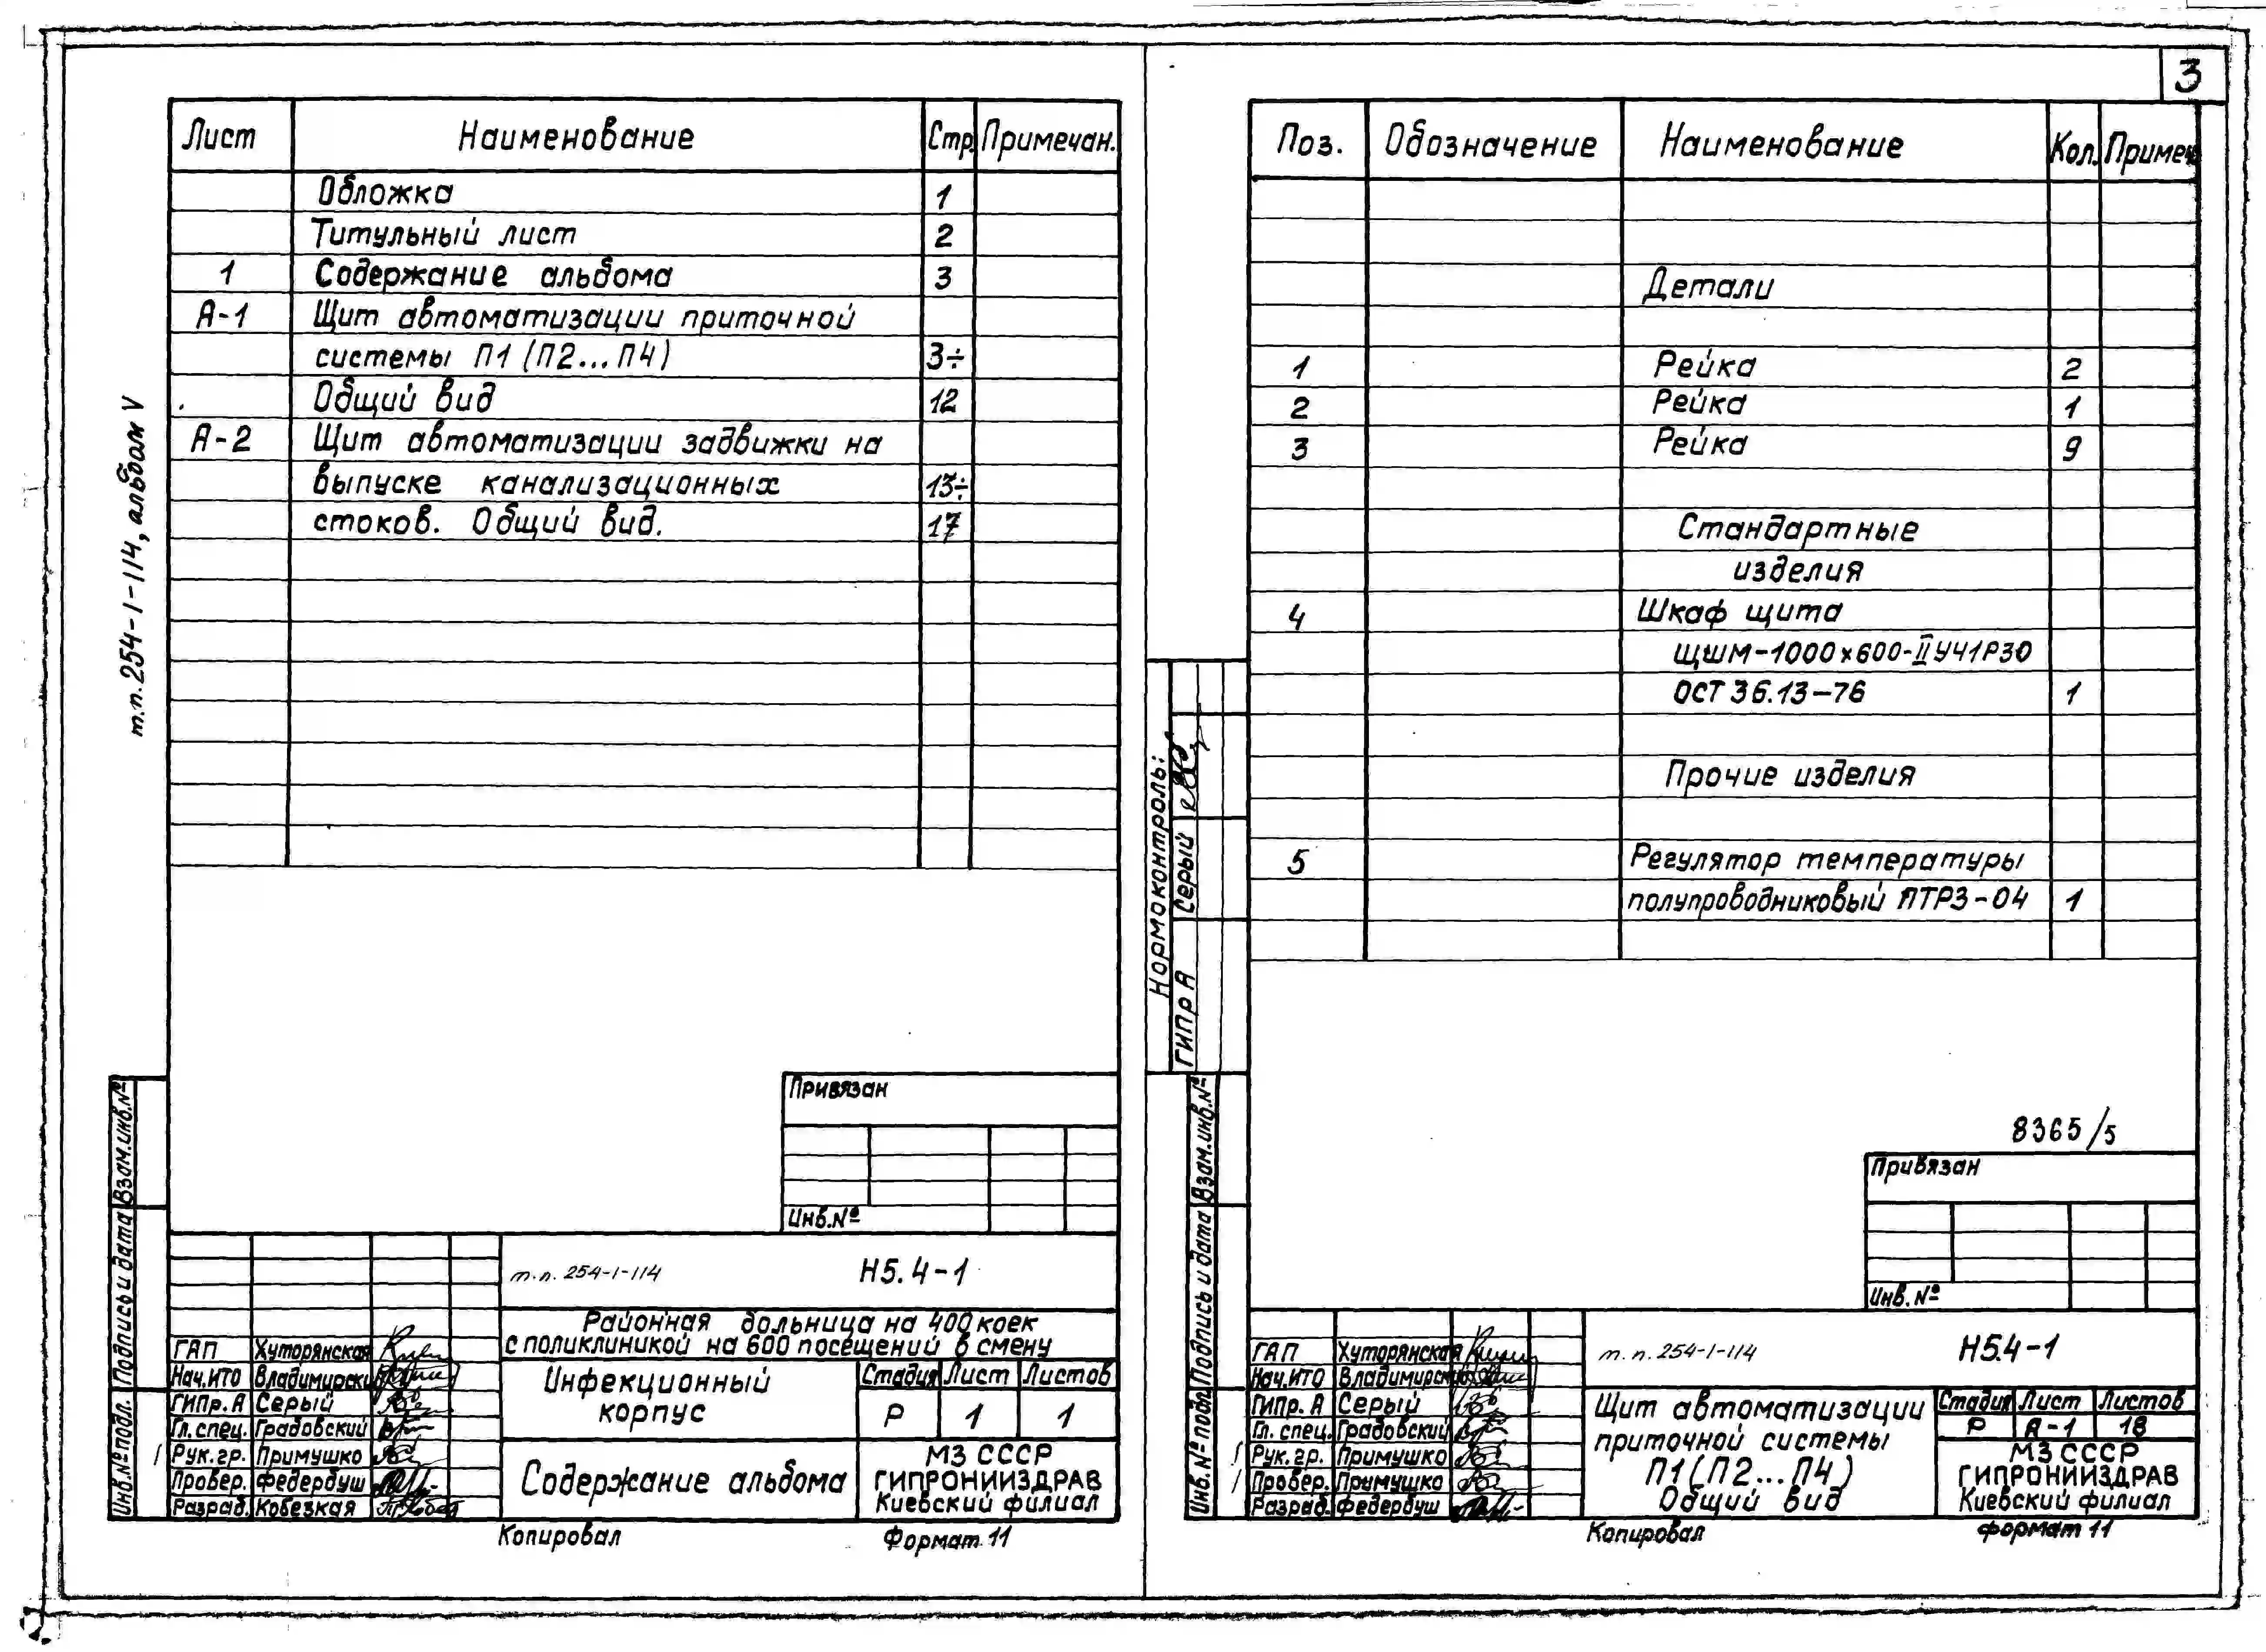 3
т.п. 254-1-114, альбом V
Лист Наименование Стр. Примечан.
Обложка 1
Титульный лист 2
1 Содержание альбома 3
А-1 Щит автоматизации приточной
системы П1 (П2...П4) 3÷
Общий вид 12
А-2 Щит автоматизации задвижки на
выпуске канализационных 13÷
стоков. Общий вид. 17
Привязан
Инв.№
т.п. 254-1-114 Н5.4-1
Районная больница на 400 коек
с поликлиникой на 600 посещений в смену
Инфекционный
корпус
Стадия Лист Листов
Р 1 1
Содержание альбома
МЗ СССР
ГИПРОНИИЗДРАВ
Киевский филиал
ГАП Хуторянская
Нач.ИТО Владимирски
ГИПр.А Серый
Гл.спец. Градовский
Рук.гр. Примушко
Провер. Федербуш
Разраб. Кобезкая
Инв.№ подл. Подпись и дата Взам.инв.№
Копировал Формат 11
Поз. Обозначение Наименование Кол. Примеч
Детали
1 Рейка 2
2 Рейка 1
3 Рейка 9
Стандартные
изделия
4 Шкаф щита
ЩШМ-1000х600-II УЧ1Р30
ОСТ 36.13-76 1
Прочие изделия
5 Регулятор температуры
полупроводниковый ПТР3-04 1
Нормоконтроль:
ГИПр А Серый
8365/5
Привязан
Инв.№
т.п. 254-1-114 Н5.4-1
Щит автоматизации
приточной системы
П1(П2...П4)
Общий вид
Стадия Лист Листов
Р А-1 18
МЗ СССР
ГИПРОНИИЗДРАВ
Киевский филиал
ГАП Хуторянская
Нач.ИТО
ГИПр. А Серый
Гл. спец. Градовский
Рук.гр. Примушко
Провер. Примушко
Разраб. Федербуш
Инв.№ подл. Подпись и дата Взам.инв.№
Копировал Формат 11